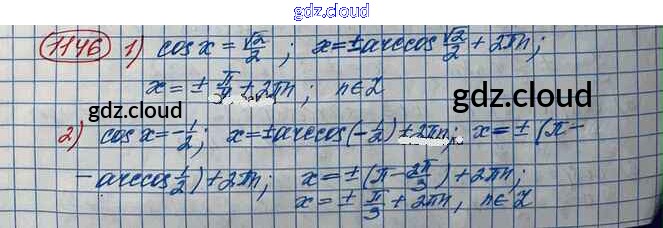 gdz.cloud
1146 1) cos x = √2/2 ; x = ± arccos √2/2 + 2πn ;
x = ± π/4 + 2πn ; n ∈ Z
gdz.cloud gdz.cloud
2) cos x = -1/2 ; x = ± arccos(-1/2) + 2πn ; x = ± (π -
- arccos 1/2) + 2πn ; x = ± (π - 2π/3) + 2πn ;
x = ± π/3 + 2πn , n ∈ Z
gdz.cloud gdz.cloud